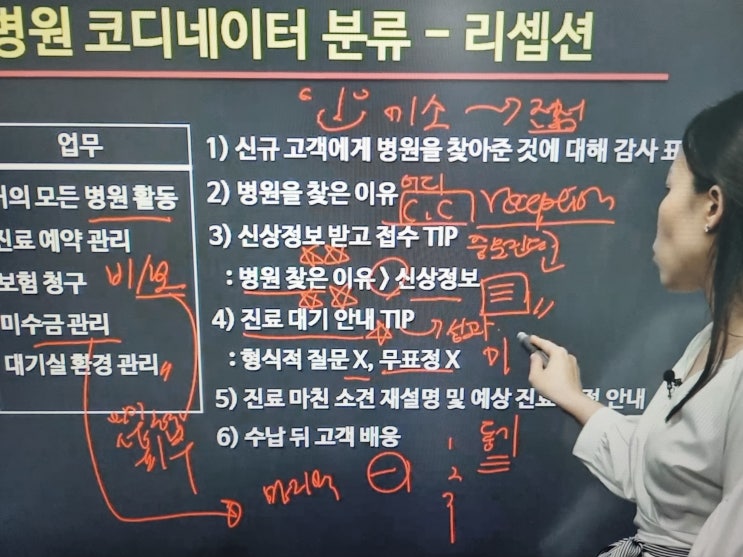 병원 코디네이터 분류 – 리셉션
"인" 미소 → 적
업무
의 모든 병원 활동
진료 예약 관리
보험 청구 비/보
미수금 관리
대기실 환경 관리
1) 신규 고객에게 병원을 찾아준 것에 대해 감사 표
2) 병원을 찾은 이유 어디 C.C reception
3) 신상정보 받고 접수 TIP
: 병원 찾은 이유 〉 신상정보
4) 진료 대기 안내 TIP
: 형식적 질문 X, 무표정 X 미
5) 진료 마친 소견 재설명 및 예상 진료 안내
6) 수납 뒤 고객 배웅 1 동기
2
3